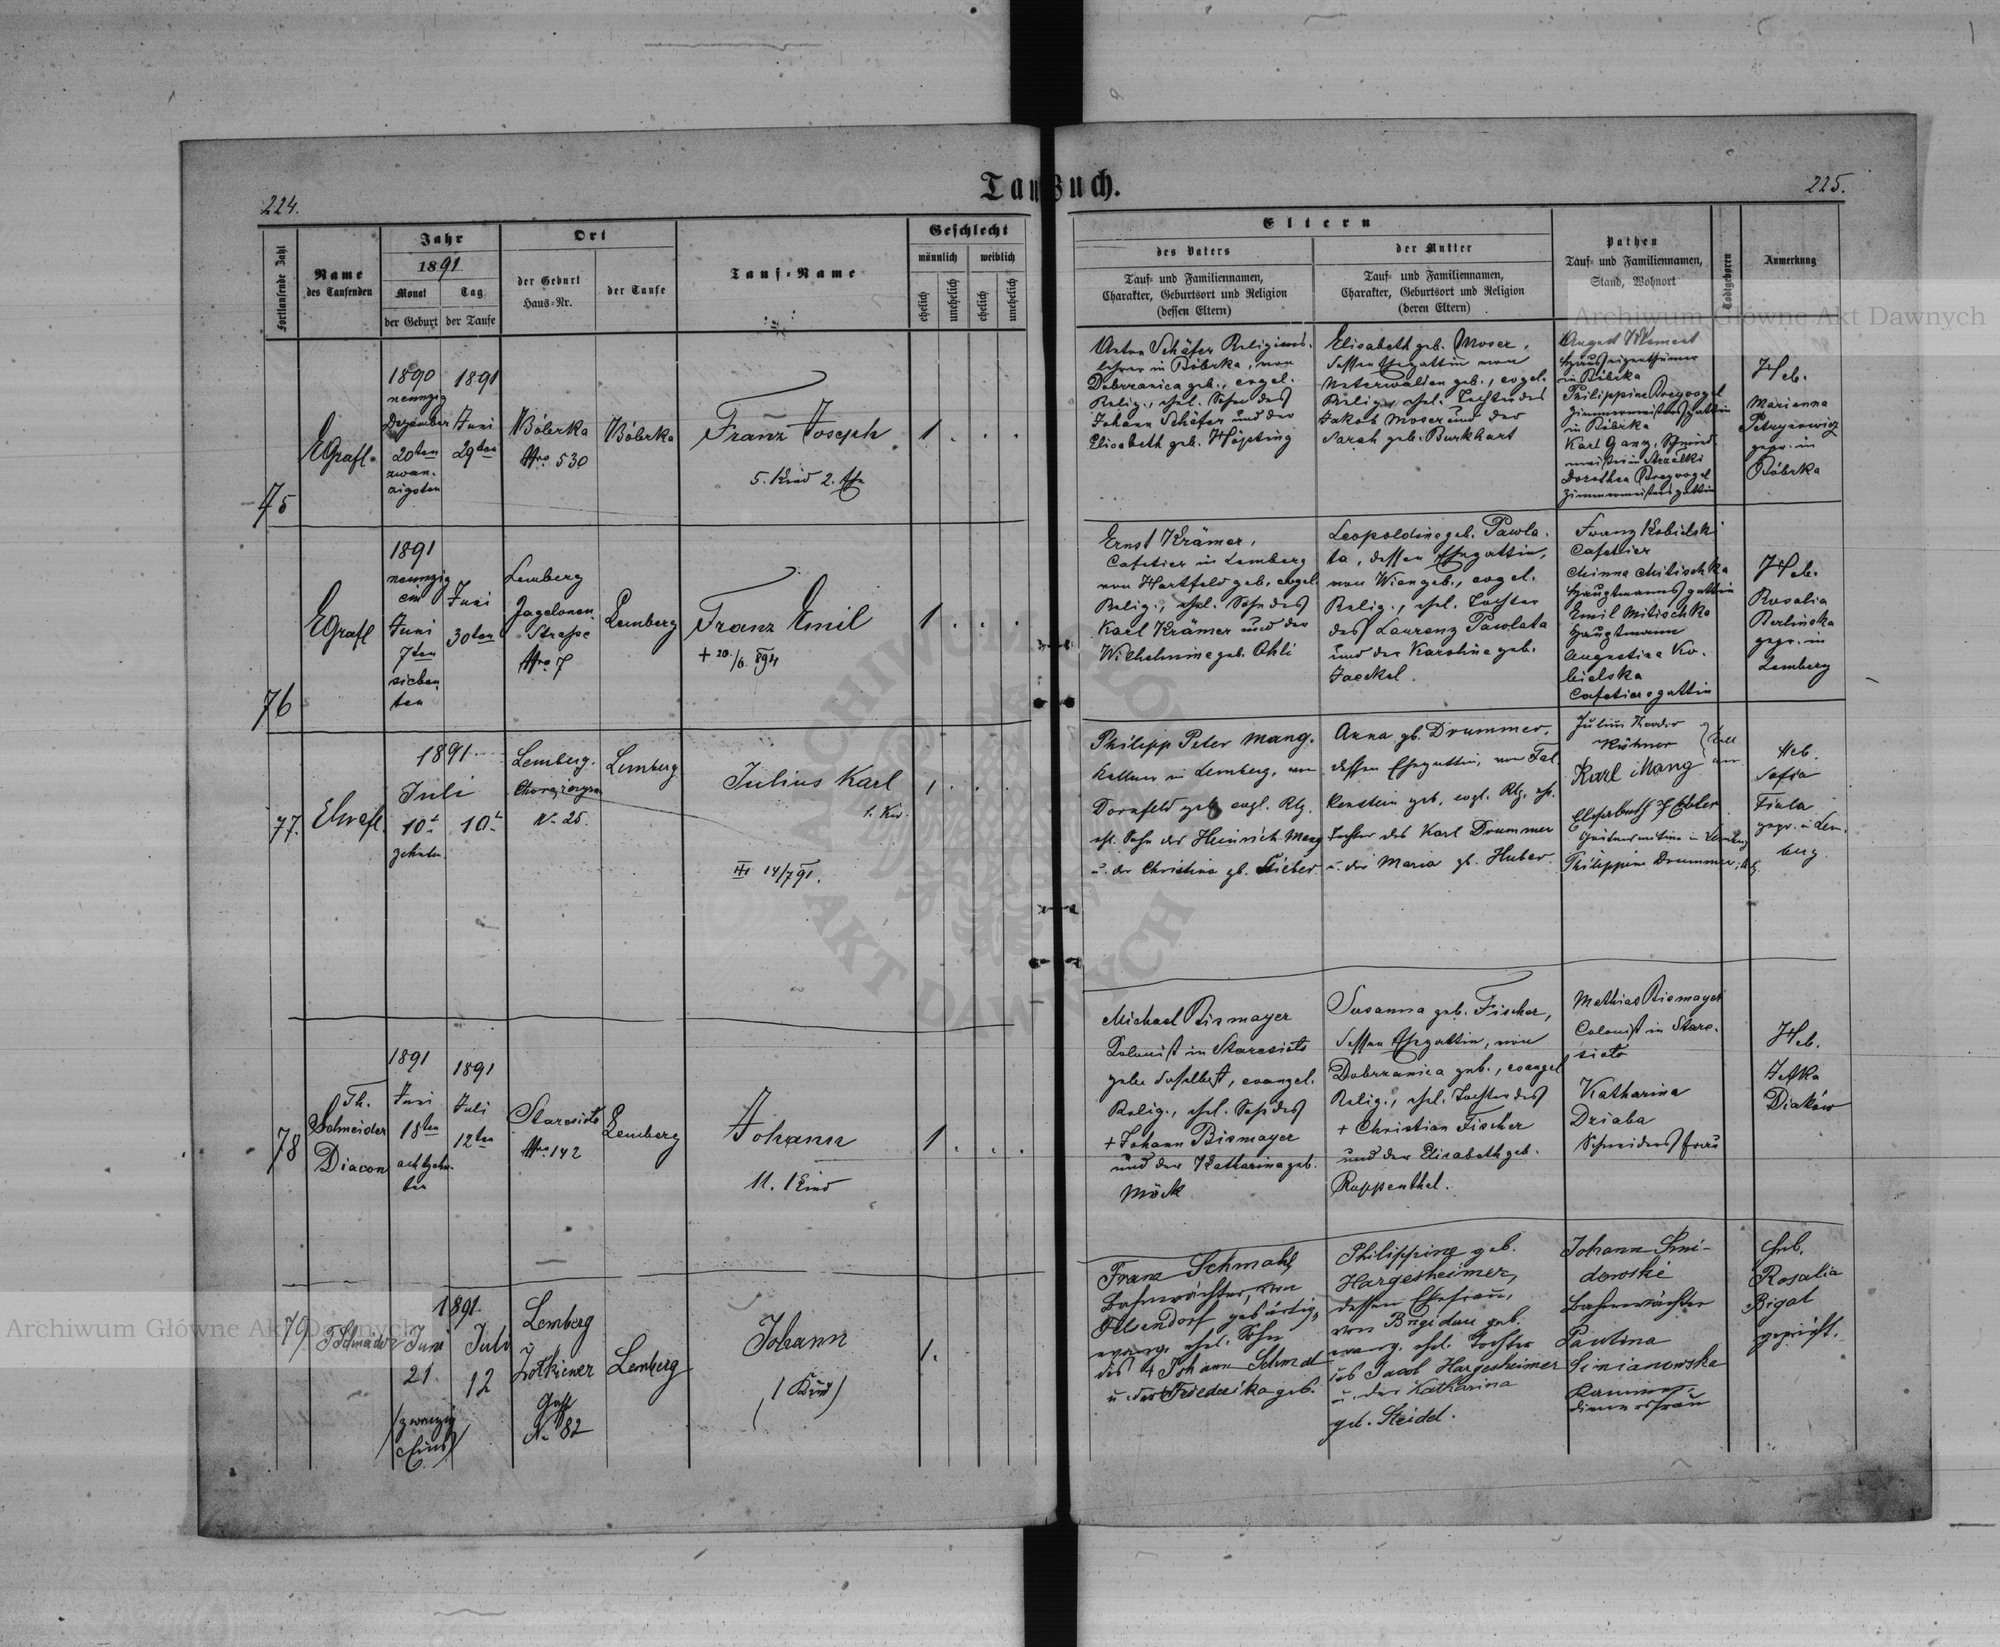 224.
Taufbuch.
225.
Fortlaufende Zahl
Name
des Taufenden
Jahr
1891
Monat
Tag
der Geburt
der Taufe
Ort
der Geburt
Haus-Nr.
der Taufe
Tauf-Name
Geschlecht
männlich
weiblich
ehelich
unehelich
ehelich
unehelich
Eltern
des Vaters
Tauf- und Familiennamen,
Charakter, Geburtsort und Religion
(dessen Eltern)
der Mutter
Tauf- und Familiennamen,
Charakter, Geburtsort und Religion
(deren Eltern)
Pathen
Tauf- und Familiennamen,
Stand, Wohnort
Todtgeboren
Anmerkung
75
EGrafl.
1890
neunzig
Dezember
20ten
zwan-
zigsten
1891
Juni
29ten
Bóbrka
Nro 530
Bóbrka
Franz Joseph
5. Kind 2. Ehe
1
Anton Schäfer Religions-
lehrer in Bóbrka, von
Dobrzanica geb., evgel.
Relig., ehel. Sohn des
Johann Schäfer und der
Elisabeth geb. Höpting
Elisabeth geb. Moser,
dessen Ehegattin von
Unterwalden geb., evgel.
Relig., ehel. Tochter des
Jakob Moser und der
Sarah geb. Burkhart
August
Hauseigenthümer
in Bóbrka
Philippine Bregvogel
Zimmermeistersgattin
in Bóbrka
Karl Ganz, Schmied-
meister in Strzelki
Dorothea Bregvogel
Zimmermeistersgattin
Heb.
Marianna
Petryiewicz
gepr. in
Bóbrka
76
EGrafl
1891
neunzig
ein
Juni
7ten
sieben-
ten
Juni
30ten
Lemberg
Jagelonen
Straße
Nro 7
Lemberg
Franz Emil
+ 20./6. 894
1
Ernst Krämer,
Cafetier in Lemberg
von Hartfeld geb. evgel.
Relig., ehel. Sohn des
Karl Krämer und der
Wilhelmine geb. Ohli
Leopoldine geb. Pawla-
ta, dessen Ehegattin,
von Wien geb., evgel.
Relig., ehel. Tochter
des Laurenz Pawlata
und der Karoline geb.
Jaeckel.
Franz Kobielski
Cafetier
Minna Mitischka
Hauptmannsgattin
Emil Mitischka
Hauptmann
Augustina Ko-
bielska
Cafetiersgattin
Heb.
Rosalia
Berlinska
gepr. in
Lemberg
77.
EGrafl.
1891.
Juli
10t
zehnten
10t
Lemberg.
N. 25.
Lemberg
Julius Karl
1. Kind.
III 14/7 91.
1
Philipp Peter Mang.
Kellner in Lemberg, von
Dornfeld geb. evgl. Rlg.
ehl. Sohn des Heinrich Mang
u. der Christina gb. Stieber.
Anna gb. Drummer,
dessen Ehegattin, von Fal-
kenstein geb, evgl. Rlg. ehl.
Tochter des Karl Drummer
u. der Maria gb. Huber.
Julius
Karl Mang
Philippine Drummer
Heb.
Sofia
Fiala
gepr. in Lem-
berg.
78
Th.
Schneider
Diacon
1891
Juni
18ten
achtzehn-
ten
1891
Juli
12ten
Staresioło
Nro. 142
Lemberg
Johann
11. Kind
1
Michael Bismayer
Kolonist in Staresioło
geb. daselbst, evangel.
Relig., ehel. Sohn des
+ Johann Bismayer
und der Katharina geb.
Möck
Susanna geb. Fischer,
dessen Ehegattin, von
Dobrzanica geb., evangel
Relig., ehel. Tochter des
+ Christian Fischer
und der Elisabeth geb.
Ruppenthal.
Mathias Bismayer
Colonist in Stare-
sioło
Katharina
Driaba
Schneidersfrau
Heb.
Diaków
79.
TSchneider
1891.
Juni
21.
(zwanzig
Eins)
Juli
12
Lemberg
Zołkiewer
Gasse
N. 82
Lemberg
Johann
(1 Kind)
1.
Franz Schmahl,
Bahnwächter, von
Felsendorf gebürtig,
evang. ehel. Sohn
des + Johann Schmal
u. der Friederika geb.
Philippine geb.
Hargesheimer,
dessen Ehefrau,
von Brigidau geb.
evang. ehel. Tochter
des Jacob Hargesheimer
u. der Katharina
geb. Steidel.
Johann Smi-
dowski
Bahnwächter
Paulina
Simianowska
Heb.
Rosalia
Bigal
geprüft.
Archiwum Główne Akt Dawnych
Archiwum Główne Akt Dawnych
ARCHIWUM GŁÓWNE
AKT DAWNYCH